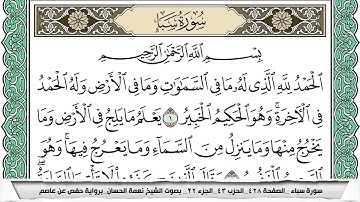 سورة سبأ
بِسْمِ ٱللَّهِ ٱلرَّحْمَٰنِ ٱلرَّحِيمِ
ٱلْحَمْدُ لِلَّهِ ٱلَّذِى لَهُۥ مَا فِى ٱلسَّمَٰوَٰتِ وَمَا فِى ٱلْأَرْضِ وَلَهُ ٱلْحَمْدُ
فِى ٱلْءَاخِرَةِ ۚ وَهُوَ ٱلْحَكِيمُ ٱلْخَبِيرُ ١ يَعْلَمُ مَا يَلِجُ فِى ٱلْأَرْضِ وَمَا
يَخْرُجُ مِنْهَا وَمَا يَنزِلُ مِنَ ٱلسَّمَآءِ وَمَا يَعْرُجُ فِيهَا ۚ وَهُوَ
سورة سباء _ الصفحة ٤٢٨ _ الحزب ٤٣ _ الجزء ٢٢ _ بصوت الشيخ نعمة الحسان _ برواية حفص عن عاصم